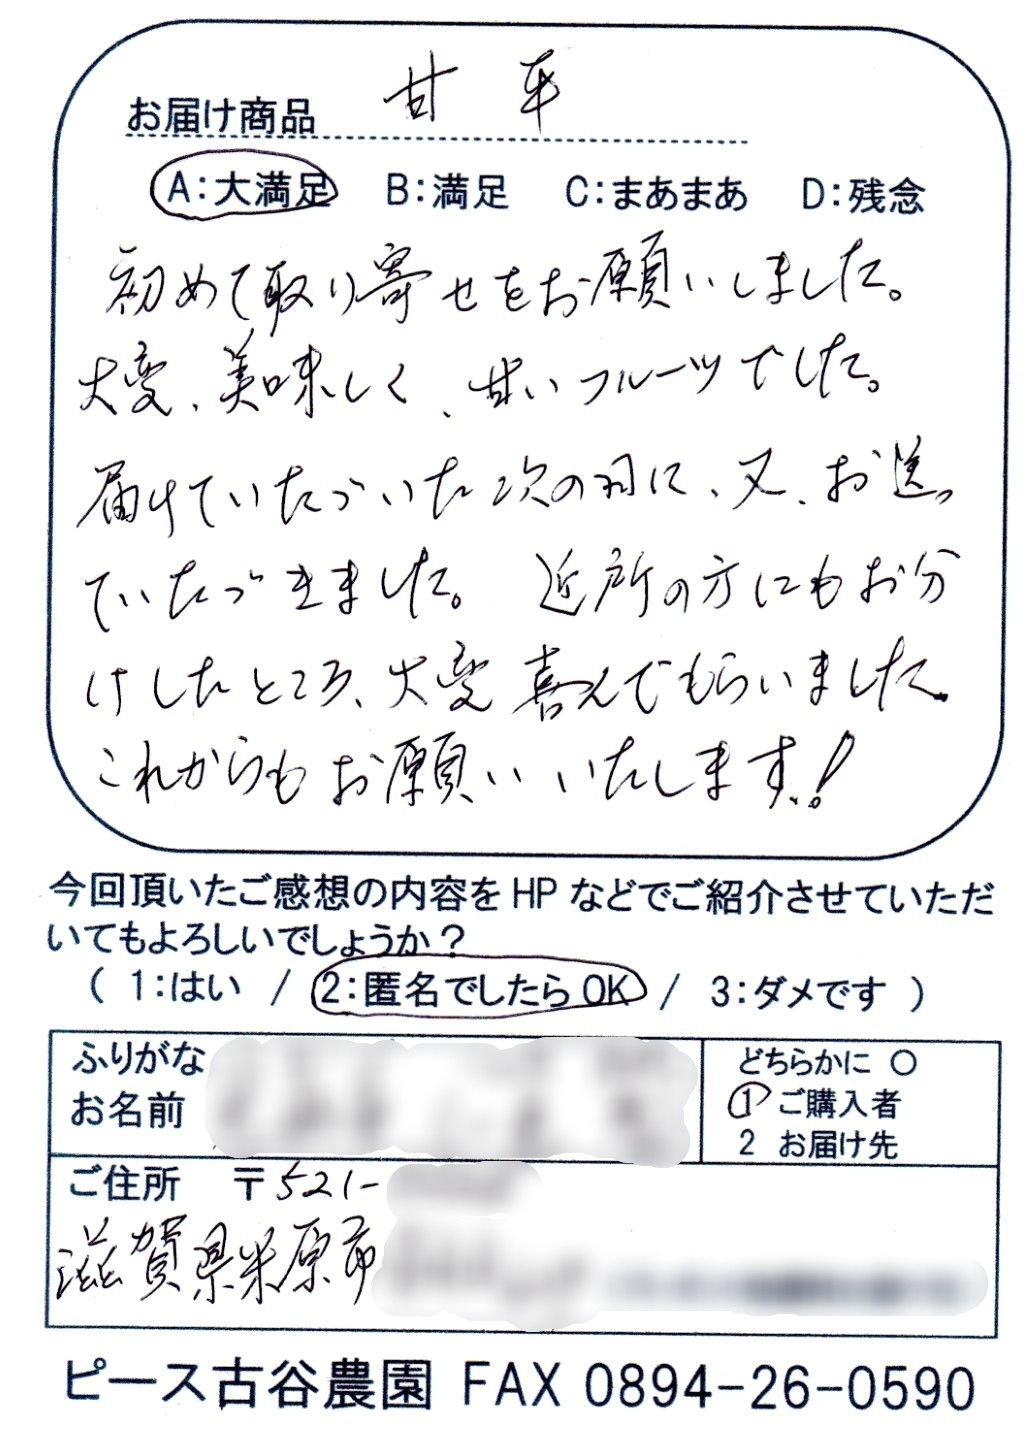 お届け商品 甘平
A:大満足 B:満足 C:まあまあ D:残念
初めて取り寄せをお願いしました。
大変、美味しく、甘いフルーツでした。
届けていたづいた次の日に、又、お送っ
ていたづきました。 近所の方にもお分
けしたところ、大変喜んでもらいました。
これからもお願いいたします!
今回頂いたご感想の内容をHPなどでご紹介させていただ
いてもよろしいでしょうか?
( 1:はい / 2:匿名でしたらOK / 3:ダメです )
ふりがな
お名前
どちらかに ○
1 ご購入者
2 お届け先
ご住所 〒521-
滋賀県米原市
ピース古谷農園 FAX 0894-26-0590